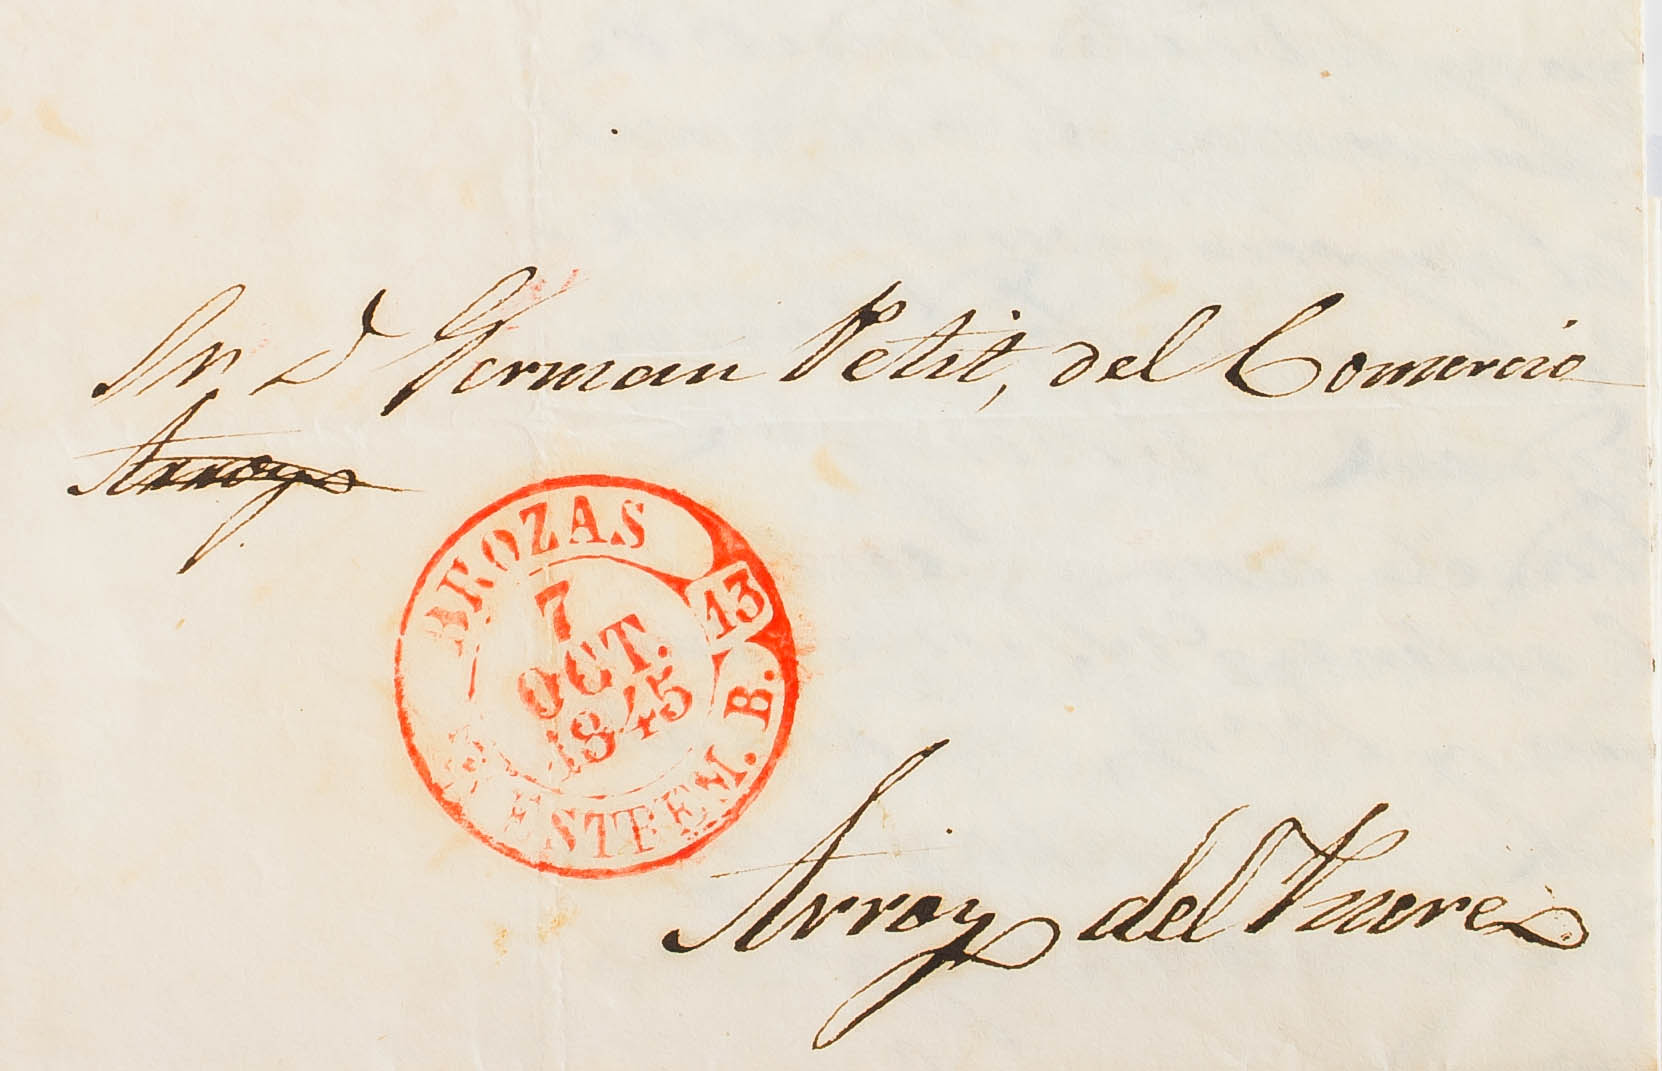 Sr. D German Petit, del Comercio
Arroyo
BROZAS
13
7
OCT.
1845
ESTREM. B.
Arroyo del Puerco